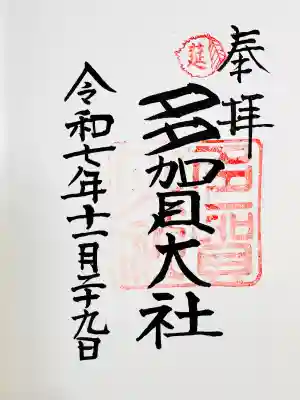 奉拝
多賀大社
令和七年十一月二十九日
延